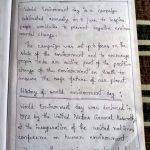 World Environment day is a campaign
celebrated annually on 5 June to inspire
people worldwide to prevent negative environ
mental change.
The campaign was set up to focus on the
state of the environment and to encourage
people to be an active part of the positive
change of the environment on Earth to
ensure the safe future of our planet.
History of world environment day:
World Environment day was declared in
1972 by the United Nations General Assembly
at the inauguration of the united nations
conference on human environment